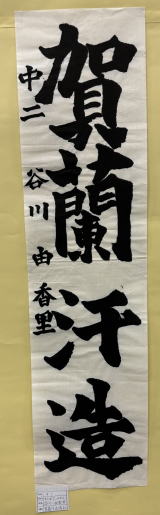 賀蘭汗造
中二 谷川由香里